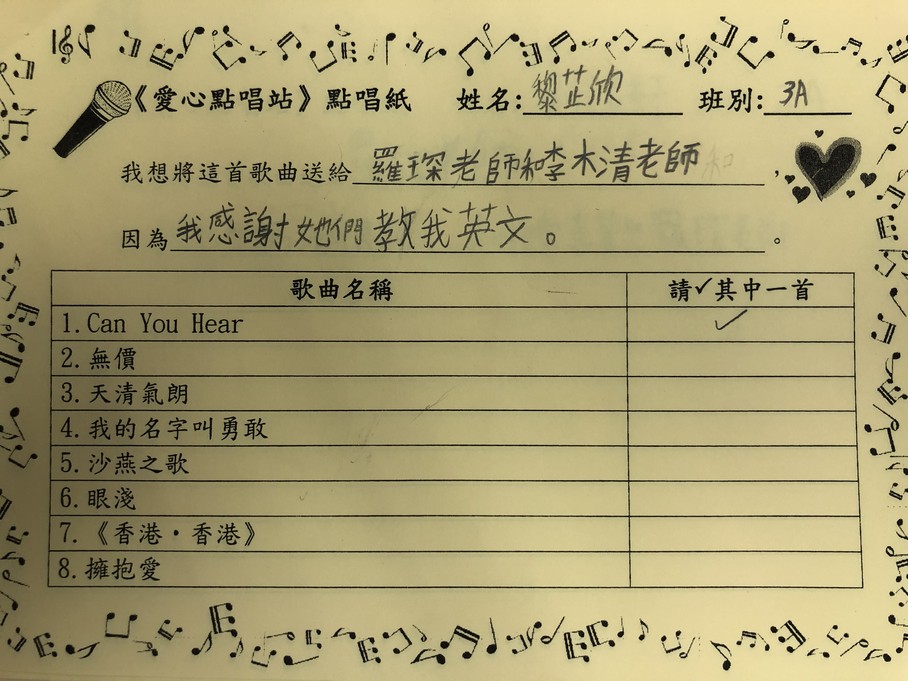 《愛心點唱站》點唱紙 姓名:黎芷欣 班別:3A
我想將這首歌曲送給 羅琛老師和李木清老師,
因為我感謝她們教我英文。。
歌曲名稱 請✓其中一首
1.Can You Hear ✓
2.無價
3.天清氣朗
4.我的名字叫勇敢
5.沙燕之歌
6.眼淺
7.《香港·香港》
8.擁抱愛